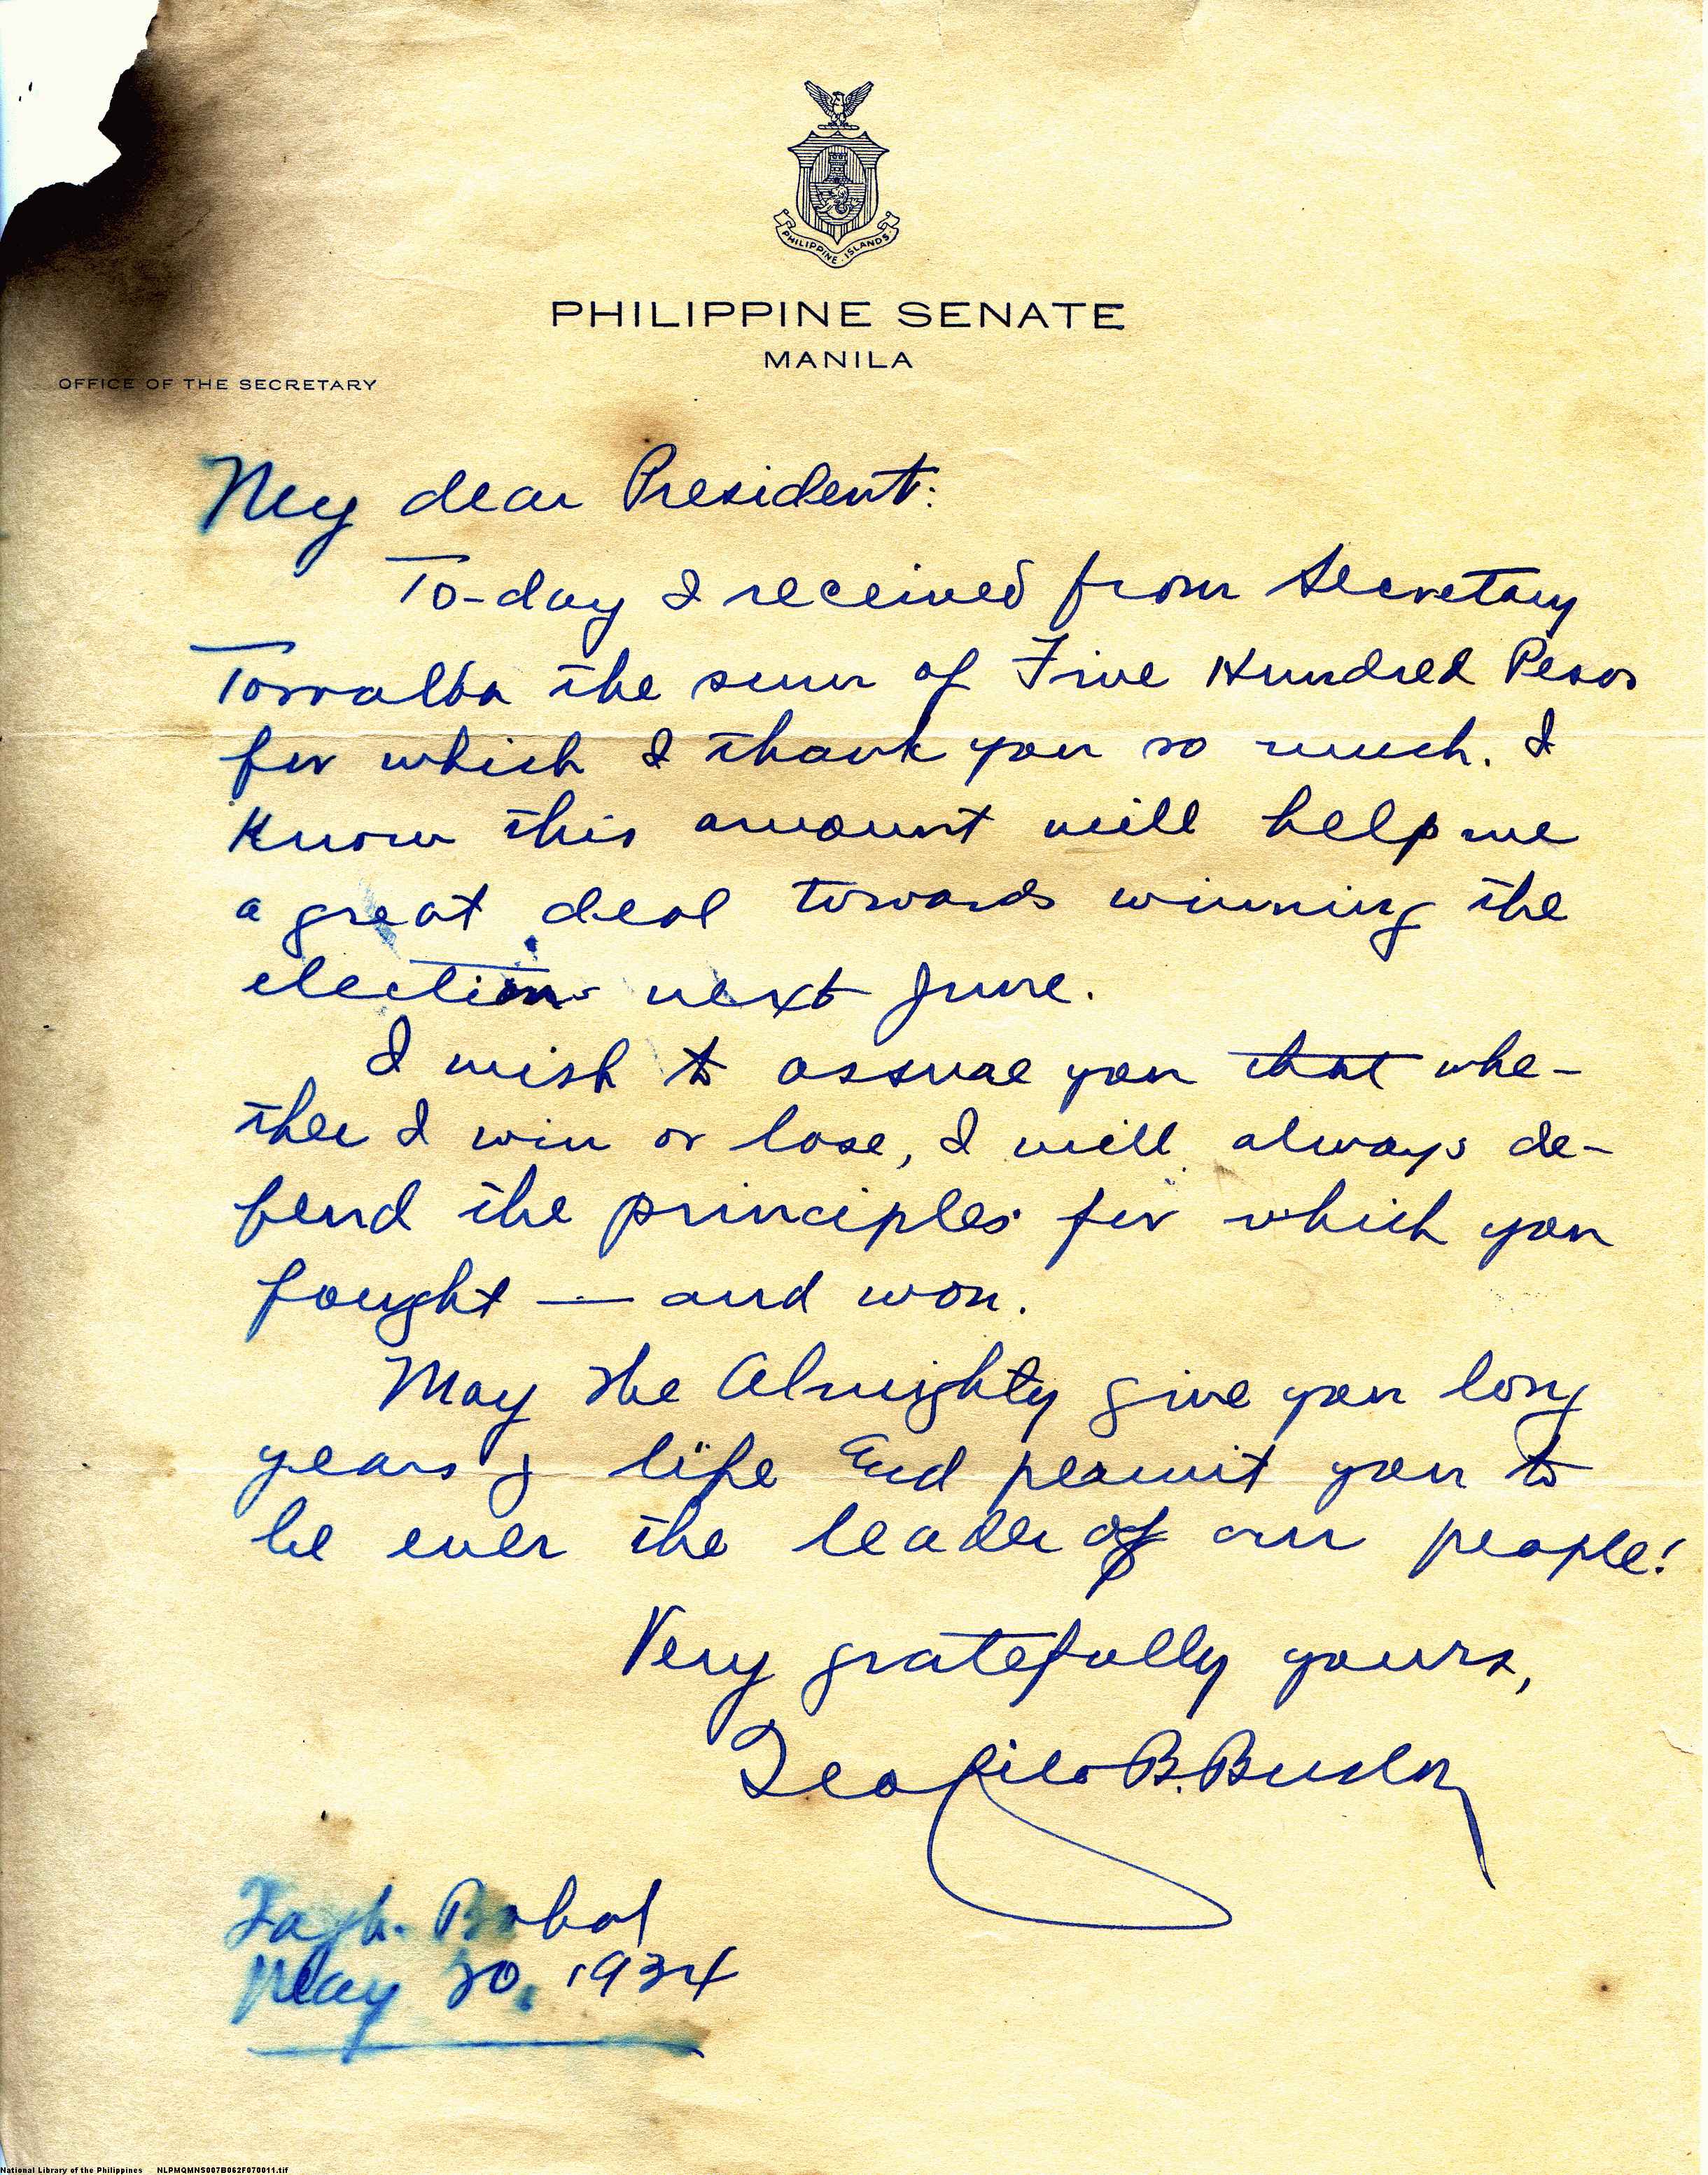 PHILIPPINE ISLANDS
PHILIPPINE SENATE
MANILA
OFFICE OF THE SECRETARY
My dear President:
To-day I received from Secretary
Torralba the sum of Five Hundred Pesos
for which I thank you so much. I
know this amount will help me
a great deal towards winning the
election next June.
I wish to assure you that whe-
ther I win or lose, I will always de-
fend the principles for which you
fought — and won.
May the Almighty give you long
years of life and permit you to
be ever the leader of our people!
Very gratefully yours,
Teofilo B. Buslon
Tagb. Bohol
May 20, 1934
National Library of the Philippines NLPMQMNS007B062F070011.tif